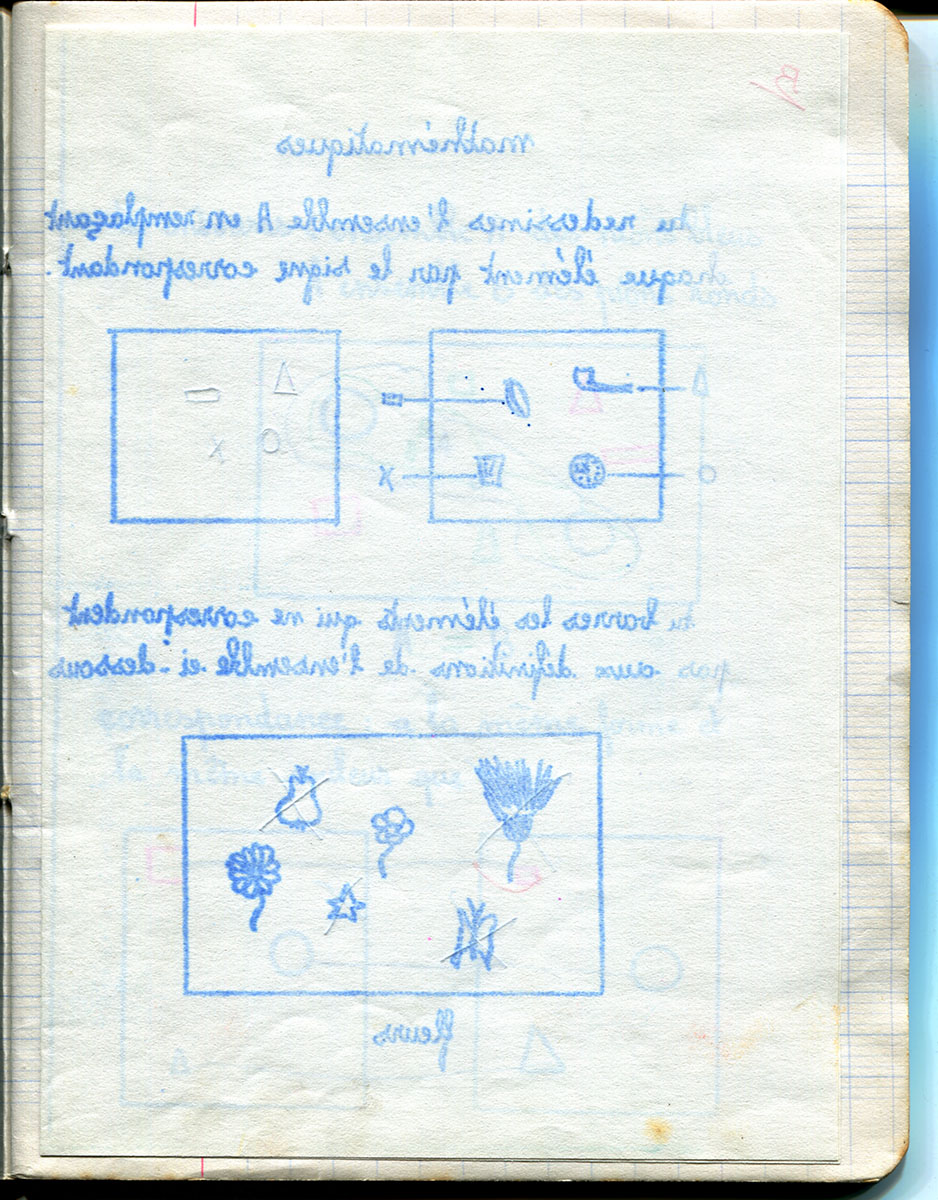 mathématiques
tu redessines l'ensemble A en remplaçant
chaque élément par le signe correspondant.
x
tu barres les éléments qui ne correspondent
pas aux définitions de l'ensemble ci-dessous
correspondance
la même
que
fleurs